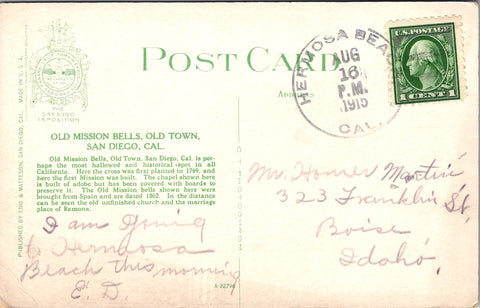 POST CARD
ADDRESS
HERMOSA BEA
AUG
16
P.M.
1915
CAL.
U.S. POSTAGE
1 CENT 1
THE
SAN DIEGO
EXPOSITION
MADE IN U.S.A.
PUBLISHED BY ENO & MATTESON, SAN DIEGO, CAL.
OLD MISSION BELLS, OLD TOWN,
SAN DIEGO, CAL.
Old Mission Bells, Old Town, San Diego, Cal. is per-
haps the most hallowed and historical spot in all
California. Here the cross was first planted in 1769, and
here the first Mission was built. The chapel shown here
is built of adobe but has been covered with boards to
preserve it. The Old Mission bells shown here were
brought from Spain and are dated 1802. In the distance
can be seen the old unfinished church and the marriage
place of Ramona.
I am going
to Hermosa
Beach this morning
E. D.
Mr. Homer Martin
323 Franklin St.
Boise,
Idaho.